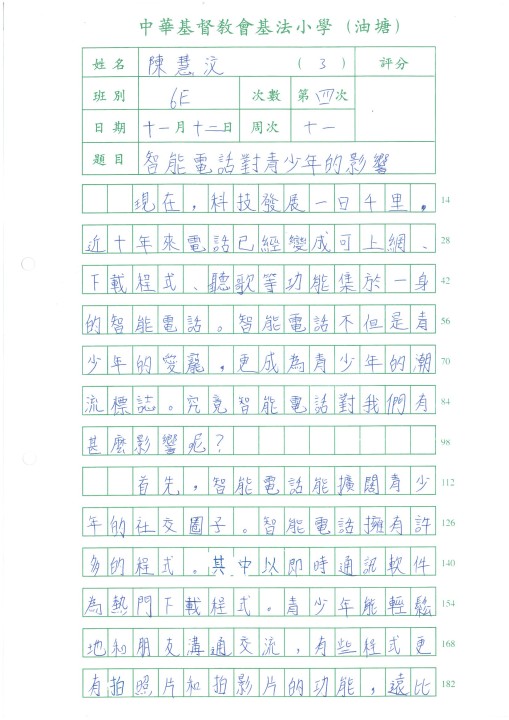 中華基督教會基法小學（油塘）
姓名 陳慧汶 （3） 評分
班別 6E 次數 第四次
日期 十一月十二日 周次 十一
題目 智能電話對青少年的影響
現在，科技發展一日千里。 14
近十年來電話已經變成可上網、 28
下載程式、聽歌等功能集於一身 42
的智能電話。智能電話不但是青 56
少年的愛寵，更成為青少年的潮 70
流標誌。究竟智能電話對我們有 84
甚麼影響呢？ 98
首先，智能電話能擴闊青少 112
年的社交圈子。智能電話擁有許 126
多的程式。其中以即時通訊軟件 140
為熱門下載程式。青少年能輕鬆 154
地和朋友溝通交流，有些程式更 168
有拍照片和拍影片的功能，遠比 182